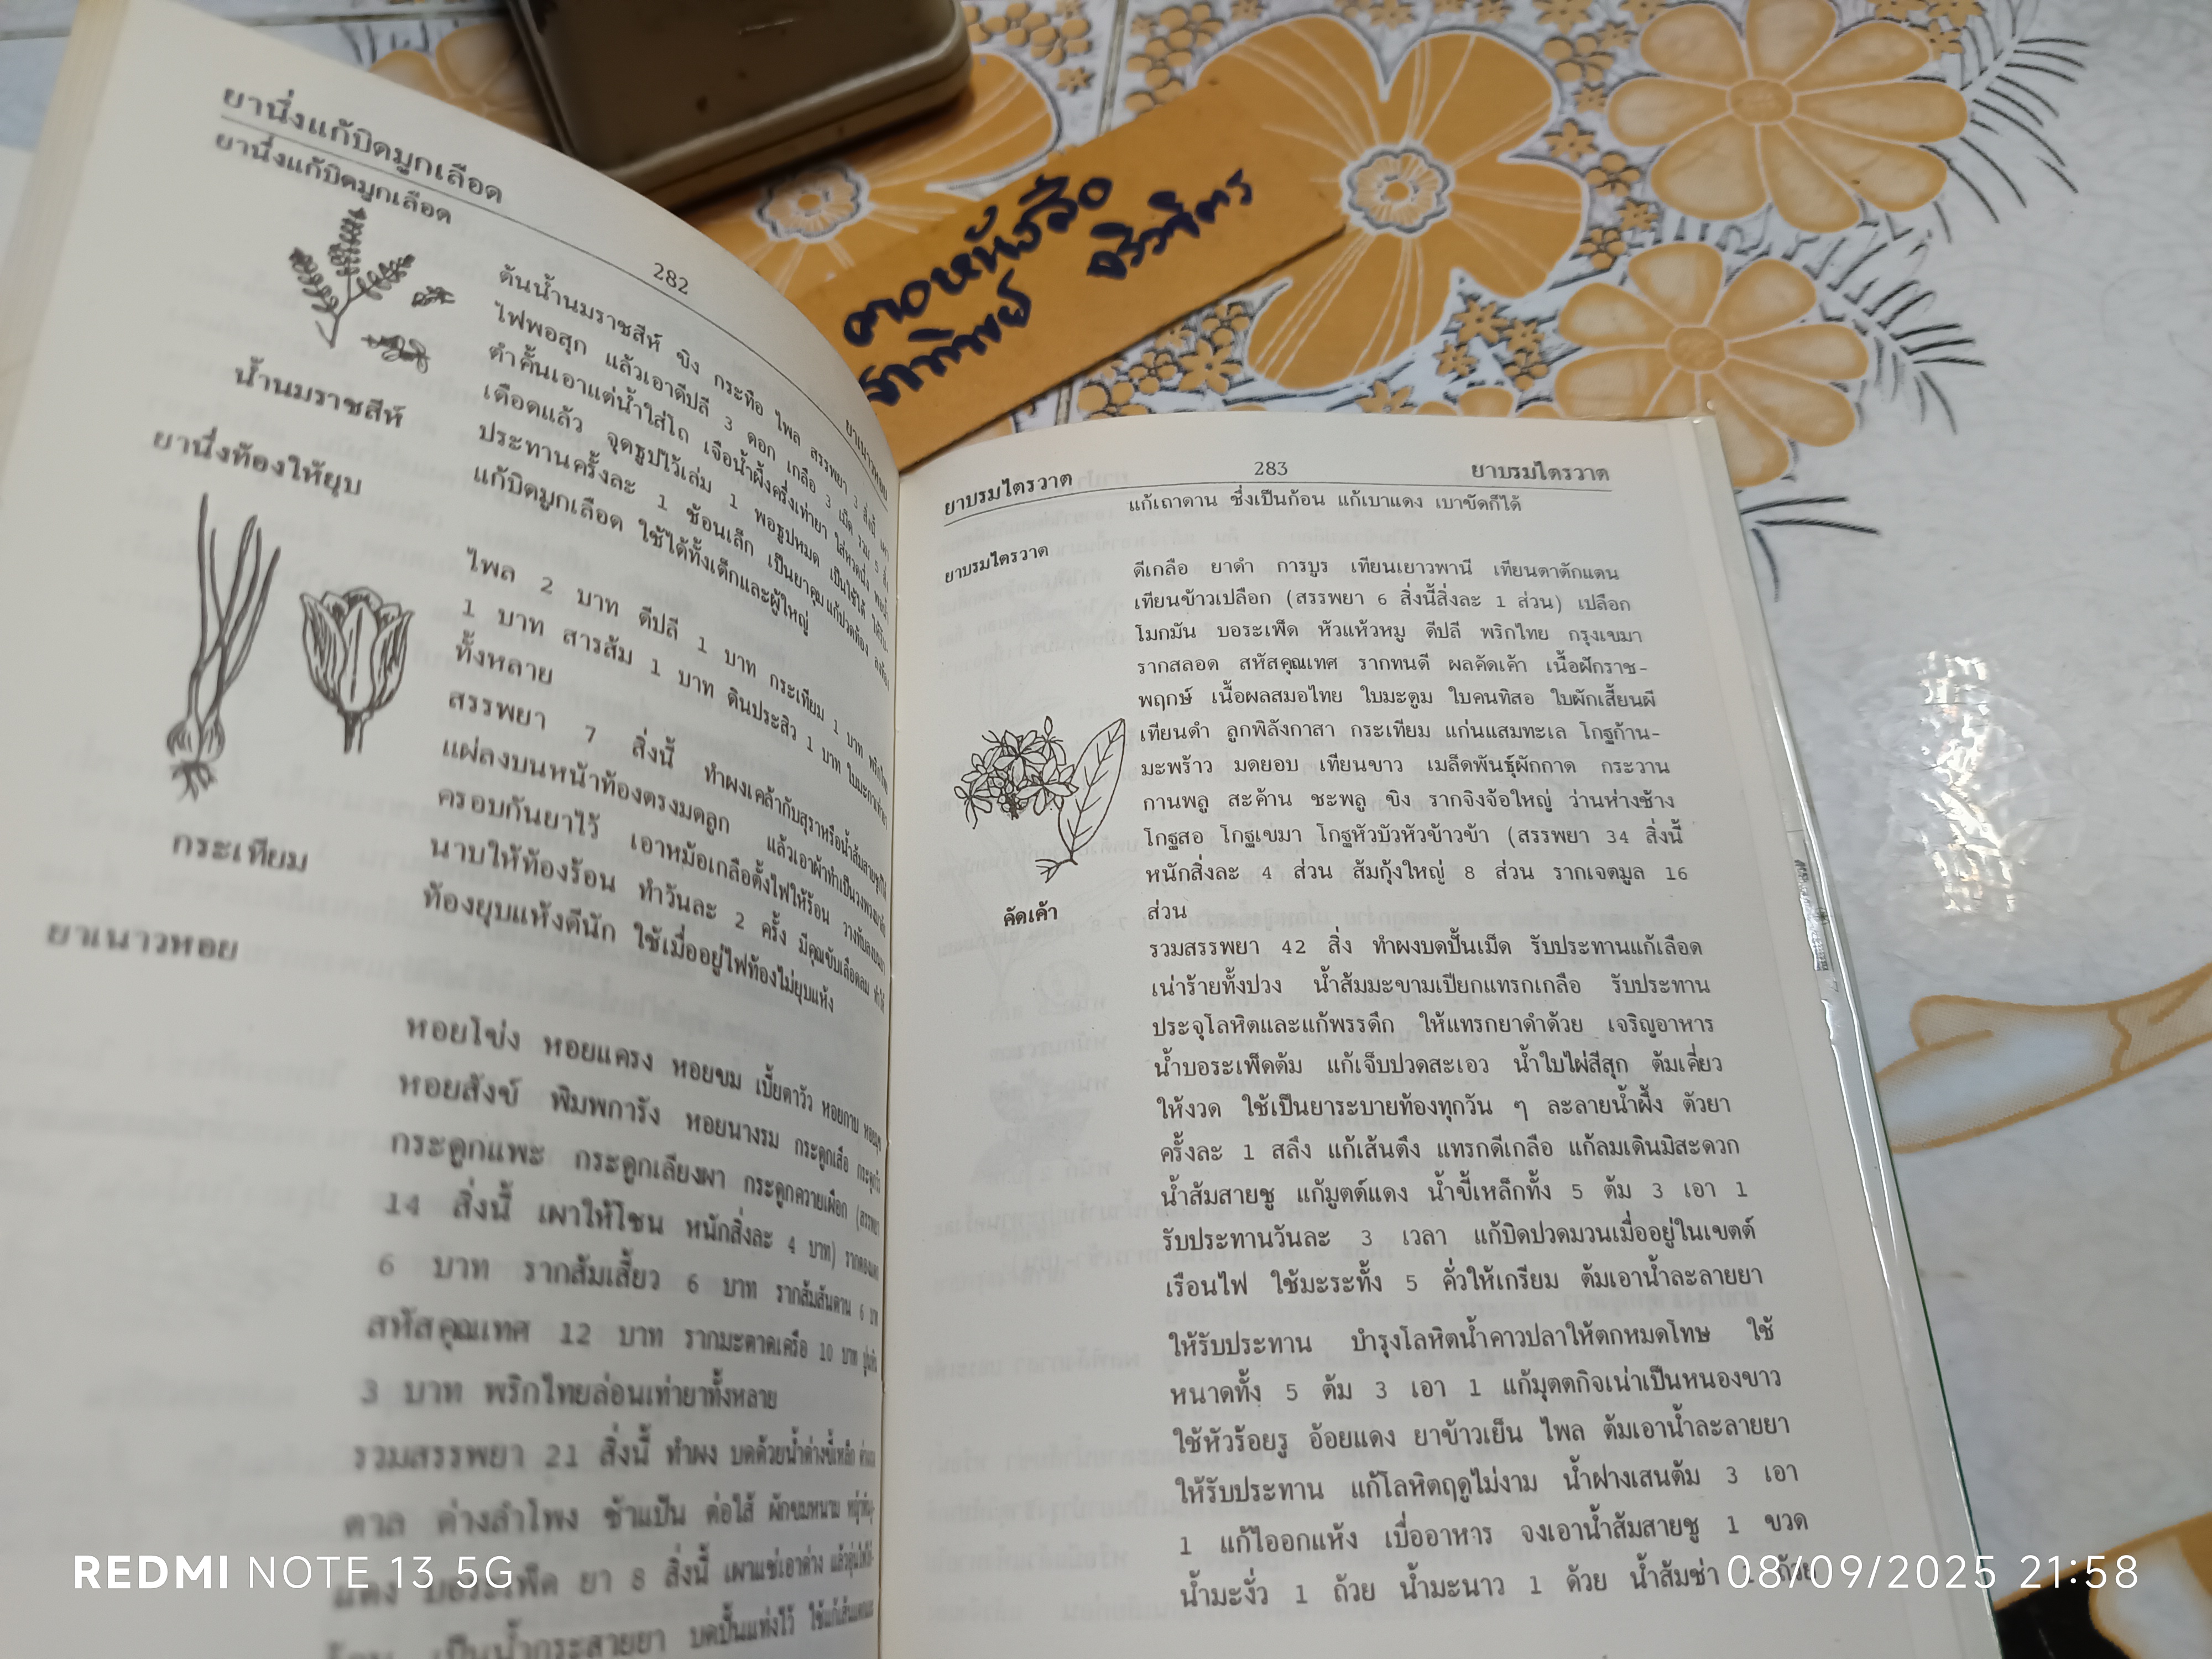 ยานึ่งแก้บิดมูกเลือด
282
ยาเนาวหอย
ยานึ่งแก้บิดมูกเลือด
ต้นน้ำนมราชสีห์ ขิง กระทือ ไพล สรรพยา
ไฟพอสุก แล้วเอาดีปลี 3 ดอก เกลือ 3 เม็ด รวม 5 สิ่ง
ตำคั้นเอาแต่น้ำใส่โถ เจือน้ำผึ้งครึ่งเท่ายา ใส่หวดนึ่ง
เดือดแล้ว จุดธูปไว้เล่ม 1 พอธูปหมด เป็นใช้ได้
ประทานครั้งละ 1 ช้อนเล็ก เป็นยาคุม แก้ปวดท้อง
แก้บิดมูกเลือด ใช้ได้ทั้งเด็กและผู้ใหญ่
น้ำนมราชสีห์
ยานึ่งท้องให้ยุบ
ไพล 2 บาท ดีปลี 1 บาท กระเทียม 1 บาท พริกไทย
1 บาท สารส้ม 1 บาท ดินประสิว 1 บาท ใบมะกาเท่ายา
ทั้งหลาย
สรรพยา 7 สิ่งนี้ ทำผงเคล้ากับสุราหรือน้ำส้มสายชูก็ได้
แผ่ลงบนหน้าท้องตรงมดลูก แล้วเอาผ้าทำเป็นวง
ครอบกันยาไว้ เอาหม้อเกลือตั้งไฟให้ร้อน วางทับลงบนยา
นาบให้ท้องร้อน ทำวันละ 2 ครั้ง มีคุณขับเลือดลม ทำให้
ท้องยุบแห้งดีนัก ใช้เมื่ออยู่ไฟท้องไม่ยุบแห้ง
กระเทียม
ยาเนาวหอย
หอยโข่ง หอยแครง หอยขม เบี้ยตาวัว หอยกาบ
หอยสังข์ พิมพการัง หอยนางรม กระดูกเสือ
กระดูกแพะ กระดูกเลียงผา กระดูกควายเผือก (สรรพยา
14 สิ่งนี้ เผาให้โชน หนักสิ่งละ 4 บาท)
6 บาท รากส้มเสี้ยว 6 บาท รากส้มสันดาน 6 บาท
สหัสคุณเทศ 12 บาท รากมะตาดเครือ 10 บาท
3 บาท พริกไทยล่อนเท่ายาทั้งหลาย
รวมสรรพยา 21 สิ่งนี้ ทำผง บดด้วยน้ำด่างขี้เหล็ก
ตาล ด่างลำโพง ช้าแป้น ต่อไส้ ผักขมหนาม
แดง บอระเพ็ด ยา 8 สิ่งนี้ เผาแช่เอาด่าง
เป็นน้ำกระสายยา บดปั้นแท่งไว้
ตาอหนังสือ
จิวจิตร
ยาบรมไตรวาต
283
ยาบรมไตรวาต
แก้เถาดาน ซึ่งเป็นก้อน แก้เบาแดง เบาขัดก็ได้
ยาบรมไตรวาต
ดีเกลือ ยาดำ การบูร เทียนเยาวพานี เทียนตาตักแตน
เทียนข้าวเปลือก (สรรพยา 6 สิ่งนี้สิ่งละ 1 ส่วน) เปลือก
โมกมัน บอระเพ็ด หัวแห้วหมู ดีปลี พริกไทย กรุงเขมา
รากสลอด สหัสคุณเทศ รากทนดี ผลคัดเค้า เนื้อฝักราช-
พฤกษ์ เนื้อผลสมอไทย ใบมะตูม ใบคนทิสอ ใบผักเสี้ยนผี
เทียนดำ ลูกพิลังกาสา กระเทียม แก่นแสมทะเล โกฐก้าน-
มะพร้าว มดยอบ เทียนขาว เมล็ดพันธุ์ผักกาด กระวาน
กานพลู สะค้าน ชะพลู ขิง รากจิงจ้อใหญ่ ว่านห่างช้าง
โกฐสอ โกฐเขมา โกฐหัวบัวหัวข้าวข้า (สรรพยา 34 สิ่งนี้
หนักสิ่งละ 4 ส่วน ส้มกุ้งใหญ่ 8 ส่วน รากเจตมูล 16
ส่วน
คัดเค้า
รวมสรรพยา 42 สิ่ง ทำผงบดปั้นเม็ด รับประทานแก้เลือด
เน่าร้ายทั้งปวง น้ำส้มมะขามเปียกแทรกเกลือ รับประทาน
ประจุโลหิตและแก้พรรดึก ให้แทรกยาดำด้วย เจริญอาหาร
น้ำบอระเพ็ดต้ม แก้เจ็บปวดสะเอว น้ำใบไผ่สีสุก ต้มเคี่ยว
ให้งวด ใช้เป็นยาระบายท้องทุกวัน ๆ ละลายน้ำผึ้ง ตัวยา
ครั้งละ 1 สลึง แก้เส้นตึง แทรกดีเกลือ แก้ลมเดินมิสะดวก
น้ำส้มสายชู แก้มูตต์แดง น้ำขี้เหล็กทั้ง 5 ต้ม 3 เอา 1
รับประทานวันละ 3 เวลา แก้บิดปวดมวนเมื่ออยู่ในเขตต์
เรือนไฟ ใช้มะระทั้ง 5 คั่วให้เกรียม ต้มเอาน้ำละลายยา
ให้รับประทาน บำรุงโลหิตน้ำคาวปลาให้ตกหมดโทษ ใช้
หนาดทั้ง 5 ต้ม 3 เอา 1 แก้มุตตกิจเน่าเป็นหนองขาว
ใช้หัวร้อยรู อ้อยแดง ยาข้าวเย็น ไพล ต้มเอาน้ำละลายยา
ให้รับประทาน แก้โลหิตฤดูไม่งาม น้ำฝางเสนต้ม 3 เอา
1 แก้ไอออกแห้ง เบื่ออาหาร จงเอาน้ำส้มสายชู 1 ขวด
น้ำมะงั่ว 1 ถ้วย น้ำมะนาว 1 ด้วย น้ำส้มซ่า 1 ถ้วย
REDMI NOTE 13 5G
08/09/2025 21:58